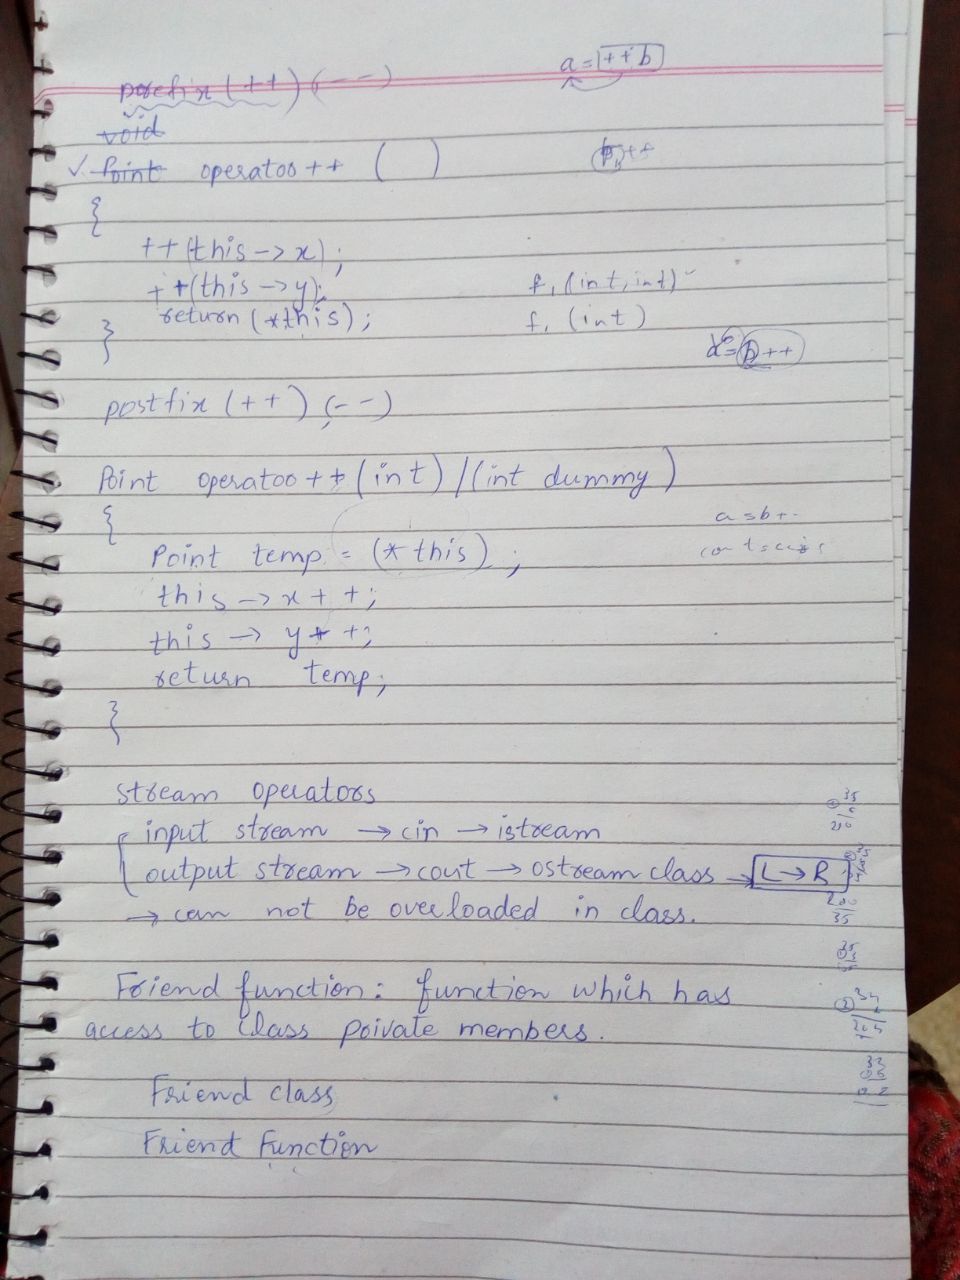 prefix (++) (--)
a = ++b
void
✓ Point operator ++ ( )
{
++(this->x);
++(this->y);
return (*this);
}
f1 (int, int)
f1 (int)
b++
postfix (++) (--)
Point operator ++ (int) / (int dummy)
{
Point temp = (*this);
this -> x++;
this -> y++;
return temp;
}
a = b+
stream operators
input stream → cin → istream
output stream → cout → ostream class → L → R
→ can not be overloaded in class.
Friend function: function which has
access to class private members.
Friend class
Friend Function